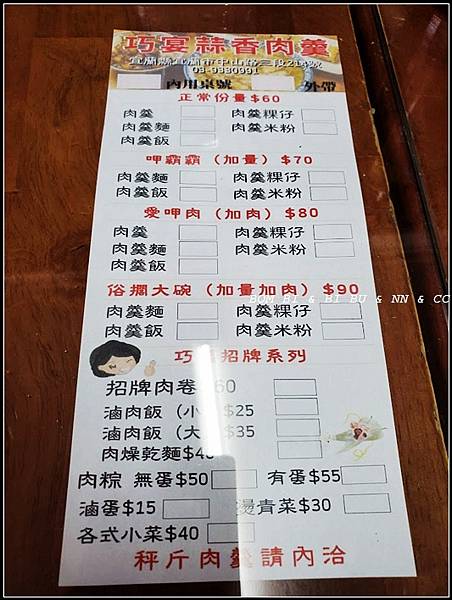 巧宴蒜香肉羹
宜蘭縣宜蘭市中山路三段214號
03-9330991
內用桌號 外帶
正常份量$60
肉羹 肉羹粿仔
肉羹麵 肉羹米粉
肉羹飯
呷霸霸（加量）$70
肉羹麵 肉羹粿仔
肉羹飯 肉羹米粉
愛呷肉（加肉）$80
肉羹 肉羹粿仔
肉羹麵 肉羹米粉
肉羹飯
俗擱大碗（加量加肉）$90
BOM BI & BI BU & NN & CC
肉羹麵 肉羹粿仔
肉羹飯 肉羹米粉
巧 招牌系列
招牌肉卷 60
滷肉飯（小 $25
滷肉飯（大 $35
肉燥乾麵$40
肉粽 無蛋$50 有蛋$55
滷蛋$15 燙青菜$30
各式小菜$40
秤斤肉羹請內洽